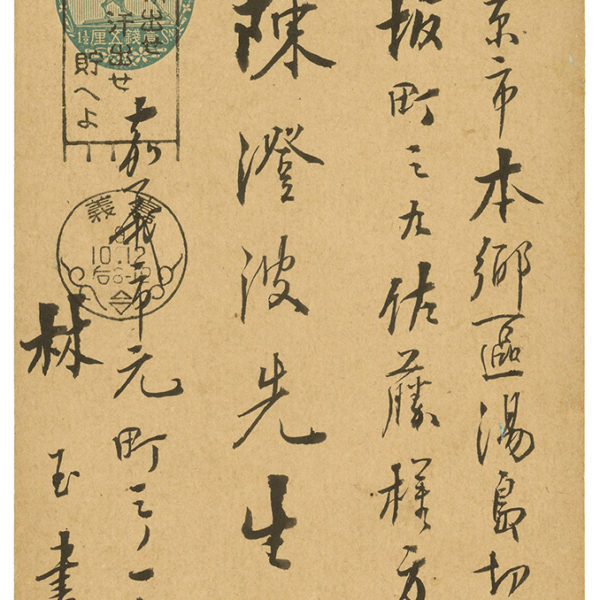 京市本郷區湯島切
坂町三九佐藤様方
陳澄波先生
嘉義市元町三ノ一
林玉書
壹錢五厘
1½ SN
出せ
汗出せ
貯へよ
嘉義
10.12
后